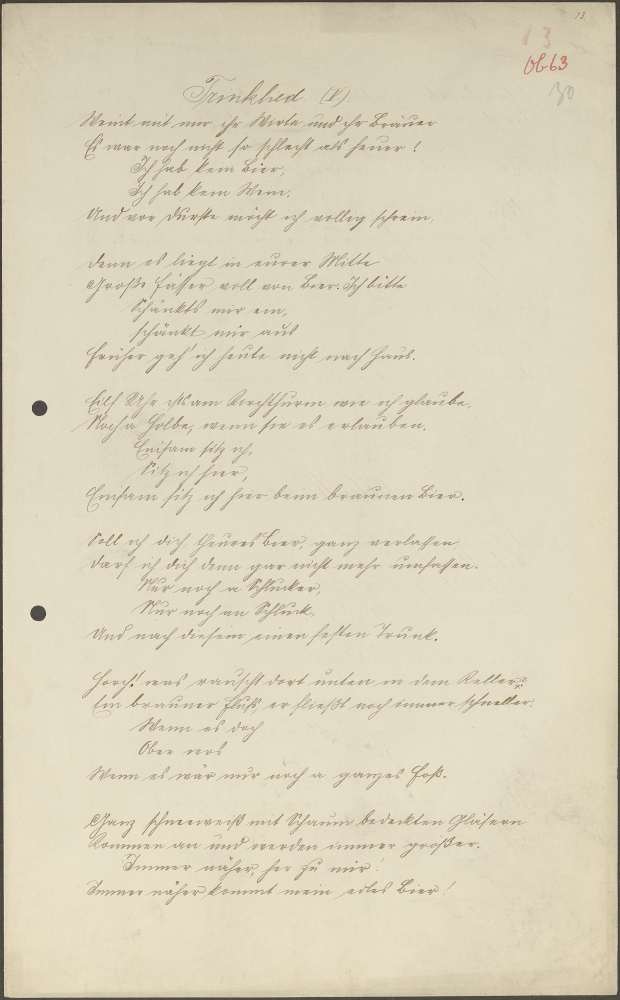 13
13
Ob63
30
Trinklied (V)
Weint mit mir ihr Wirte und ihr Bräuer
Es war noch nicht so schlecht als heuer!
Ich hab kein Bier,
Ich hab kein Wein,
Und vor Durste möcht ich völlig schrein.
Denn es liegt in eurer Mitte
Große Fässer voll von Bier. Ich bitte
Schänkts mir ein,
schänkt mir aus
Früher geh' ich heute nicht nach Haus.
Eilf Uhr ists am Kirchthurm wie ich glaube,
Noch a Halbe, wenn sie es erlauben.
Einsam sitz ich,
Sitz ich hier,
Einsam sitz ich hier beim braunen Bier.
Soll ich dich theures Bier, ganz verlassen
Darf ich dich denn gar nicht mehr umfassen.
Nur noch a Schlucker,
Nur noch an Schluck,
Und nach diesem einen festen Trunk.
Horch! was rauscht dort unten in dem Keller?
Ein brauner Fluß, er fließt noch immer schneller.
Wenn es doch
Ober uns
Wenn es wär nur noch a ganzes Faß.
Ganz schneeweiß mit Schaum bedeckten Gläsern
Kommen an und werden immer größer.
Immer näher, her zu mir!
Immer näher kommt mein edles Bier!